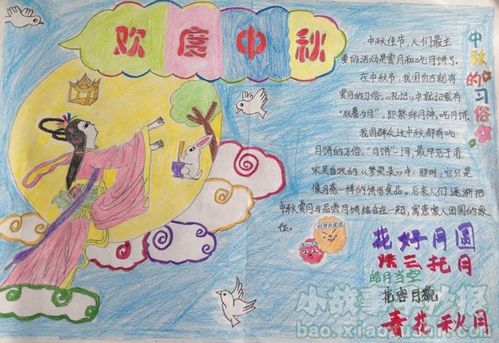 欢度中秋
中秋的习俗
中秋佳节，人们最主
要的活动是赏月和吃月饼了。
在中秋节，我国自古就有
赏月的习俗，《礼记》中就记载有
“秋暮夕月”，即祭拜月神。
我国群众过中秋都有吃
月饼的习俗，“月饼”一词，最早见于南
宋吴自牧的《梦粱录》中，那时，它只是
像菊花一样的饼形食品。后来人们逐渐把
中秋赏月与品尝月饼结合在一起，寓意家人团圆的象
征。
花好月圆
烘云托月
皓月当空
花容月貌
春花秋月
小故事
bao.xiao